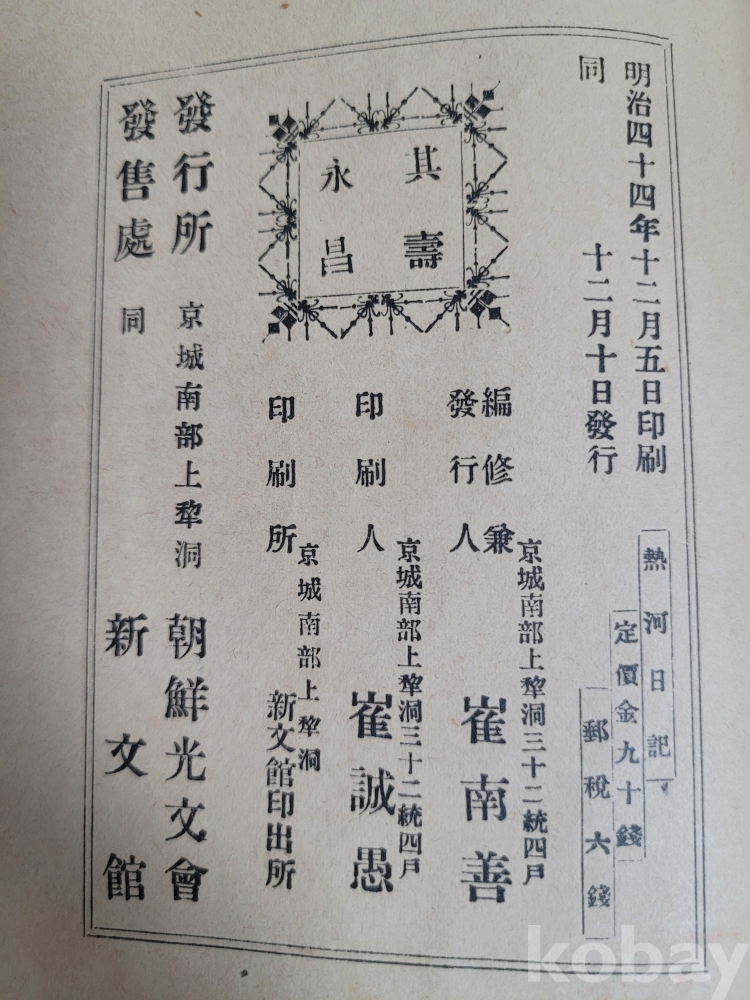 明治四十四年十二月五日印刷
同 十二月十日發行
熱河日記
定價金九十錢
郵稅六錢
其壽
永昌
編修兼
發行人
京城南部上犂洞三十二統四戶
崔南善
印刷人
京城南部上犂洞三十二統四戶
崔誠愚
印刷所
京城南部上犂洞
新文館印出所
發行所 京城南部上犂洞 朝鮮光文會
發售處 同 新文館
kobay